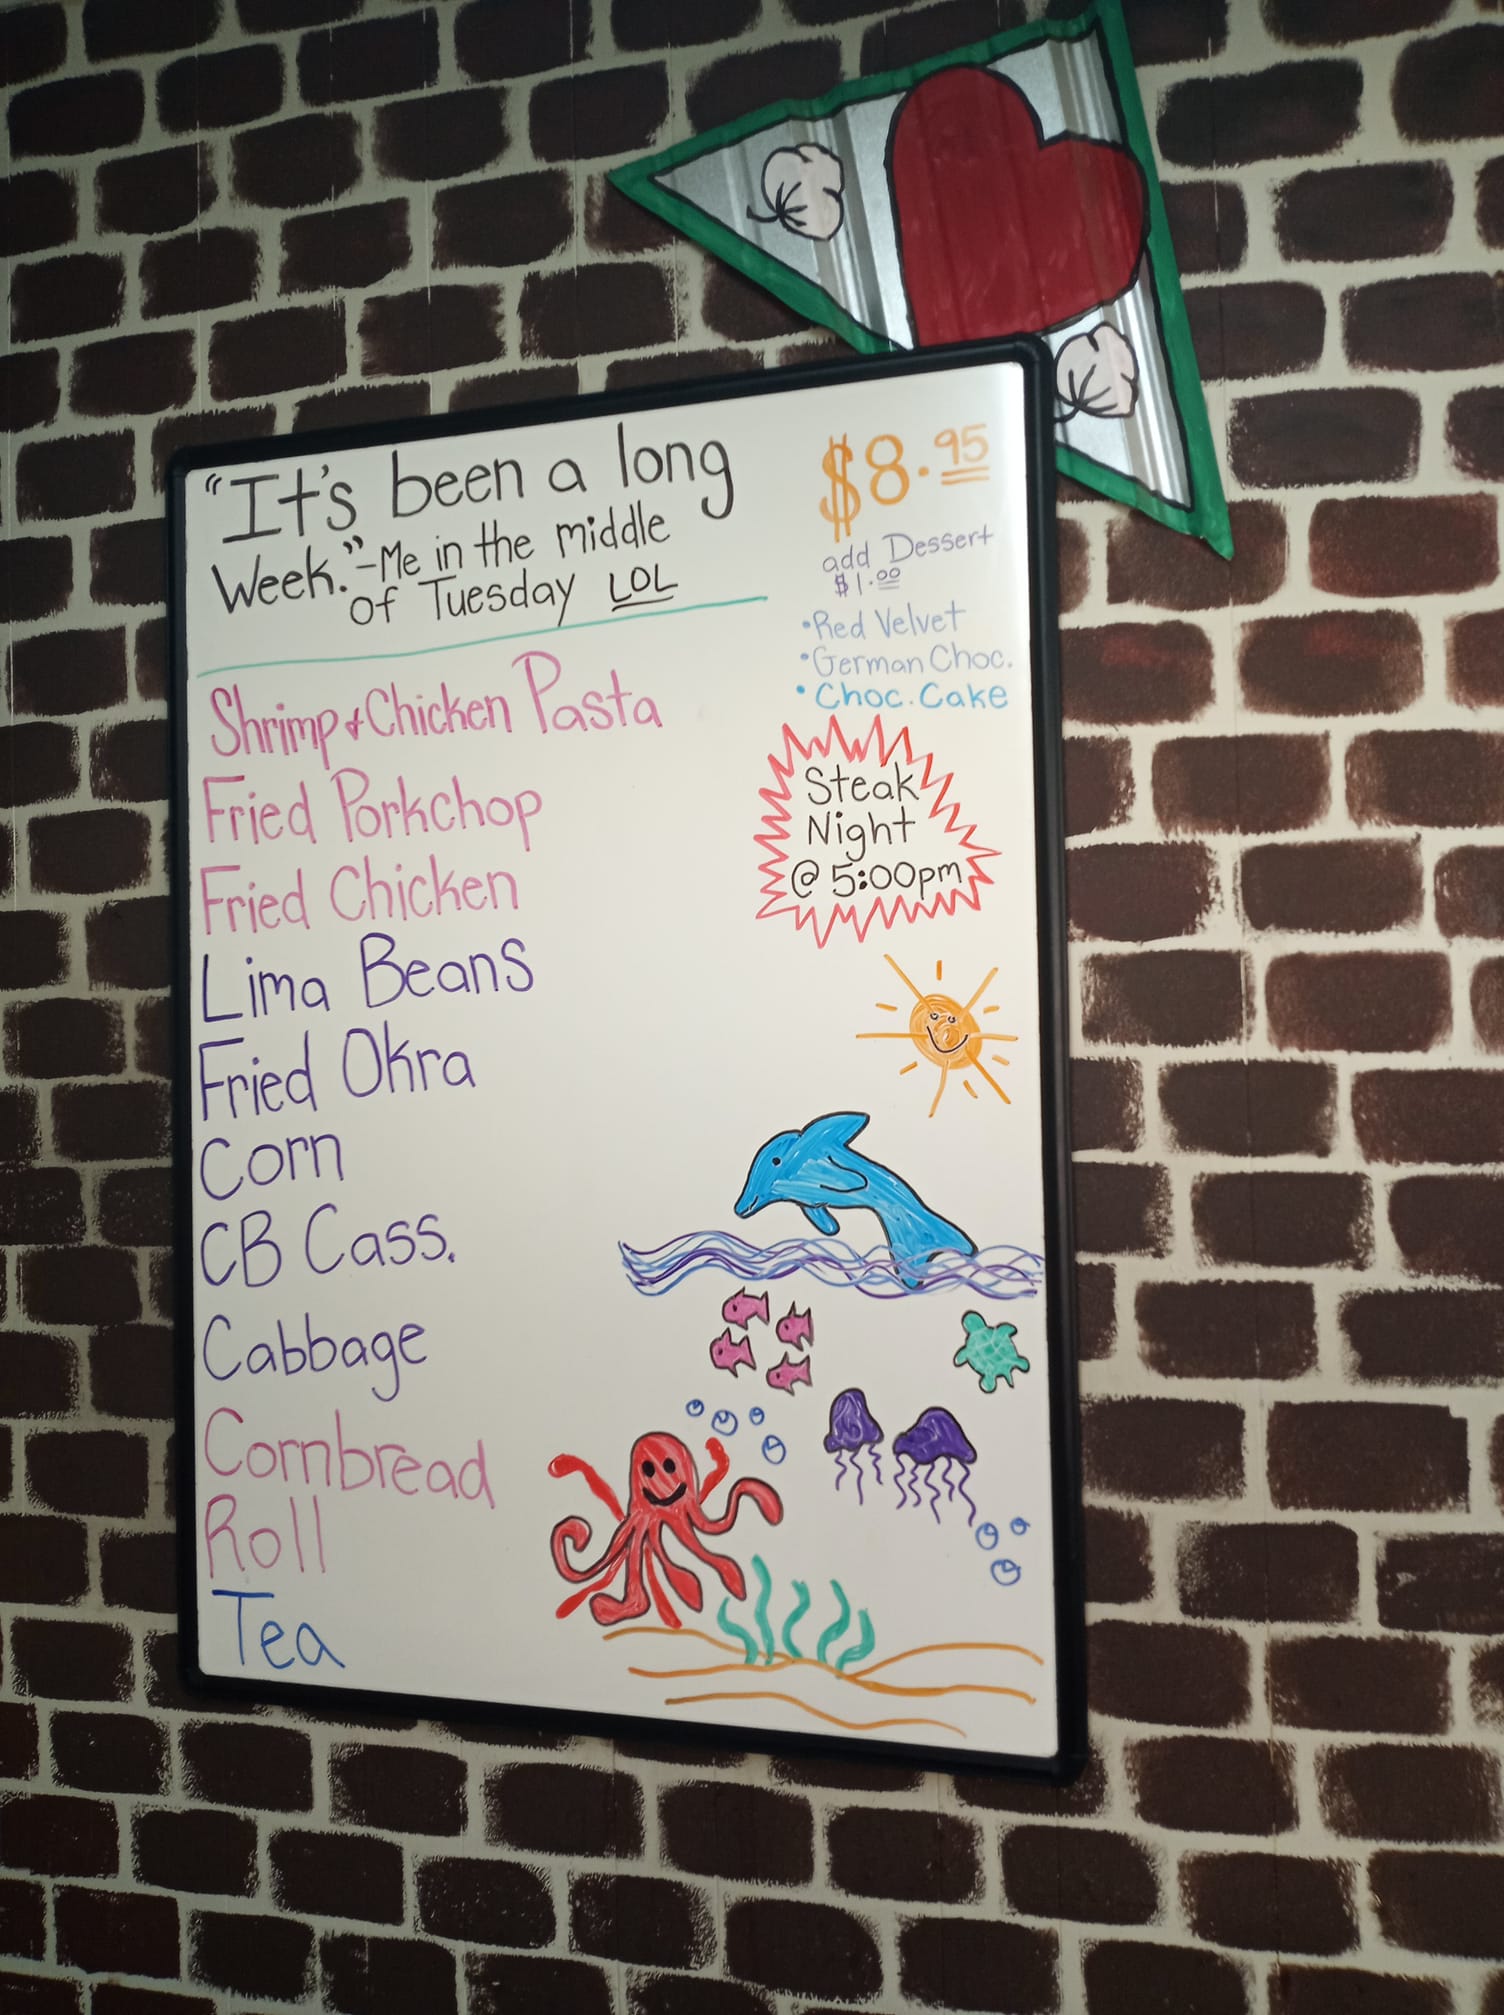 "It's been a long
Week."-Me in the middle
of Tuesday LOL
$8.95
add Dessert
$1.00
•Red Velvet
•German Choc.
•Choc. Cake
Shrimp & Chicken Pasta
Fried Porkchop
Fried Chicken
Lima Beans
Fried Okra
Corn
CB Cass.
Cabbage
Cornbread
Roll
Tea
Steak
Night
@ 5:00pm